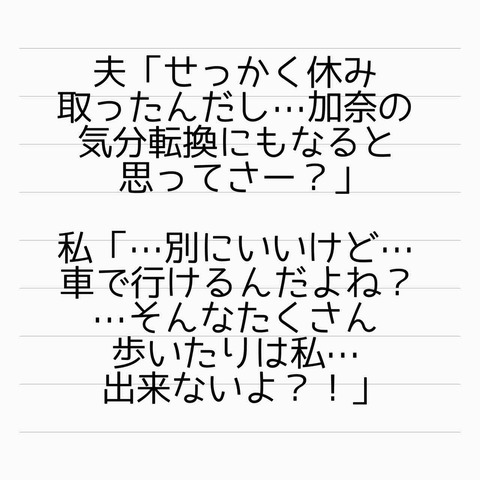 夫「せっかく休み
取ったんだし…加奈の
気分転換にもなると
思ってさー？」
私「…別にいいけど…
車で行けるんだよね？
…そんなたくさん
歩いたりは私…
出来ないよ？！」